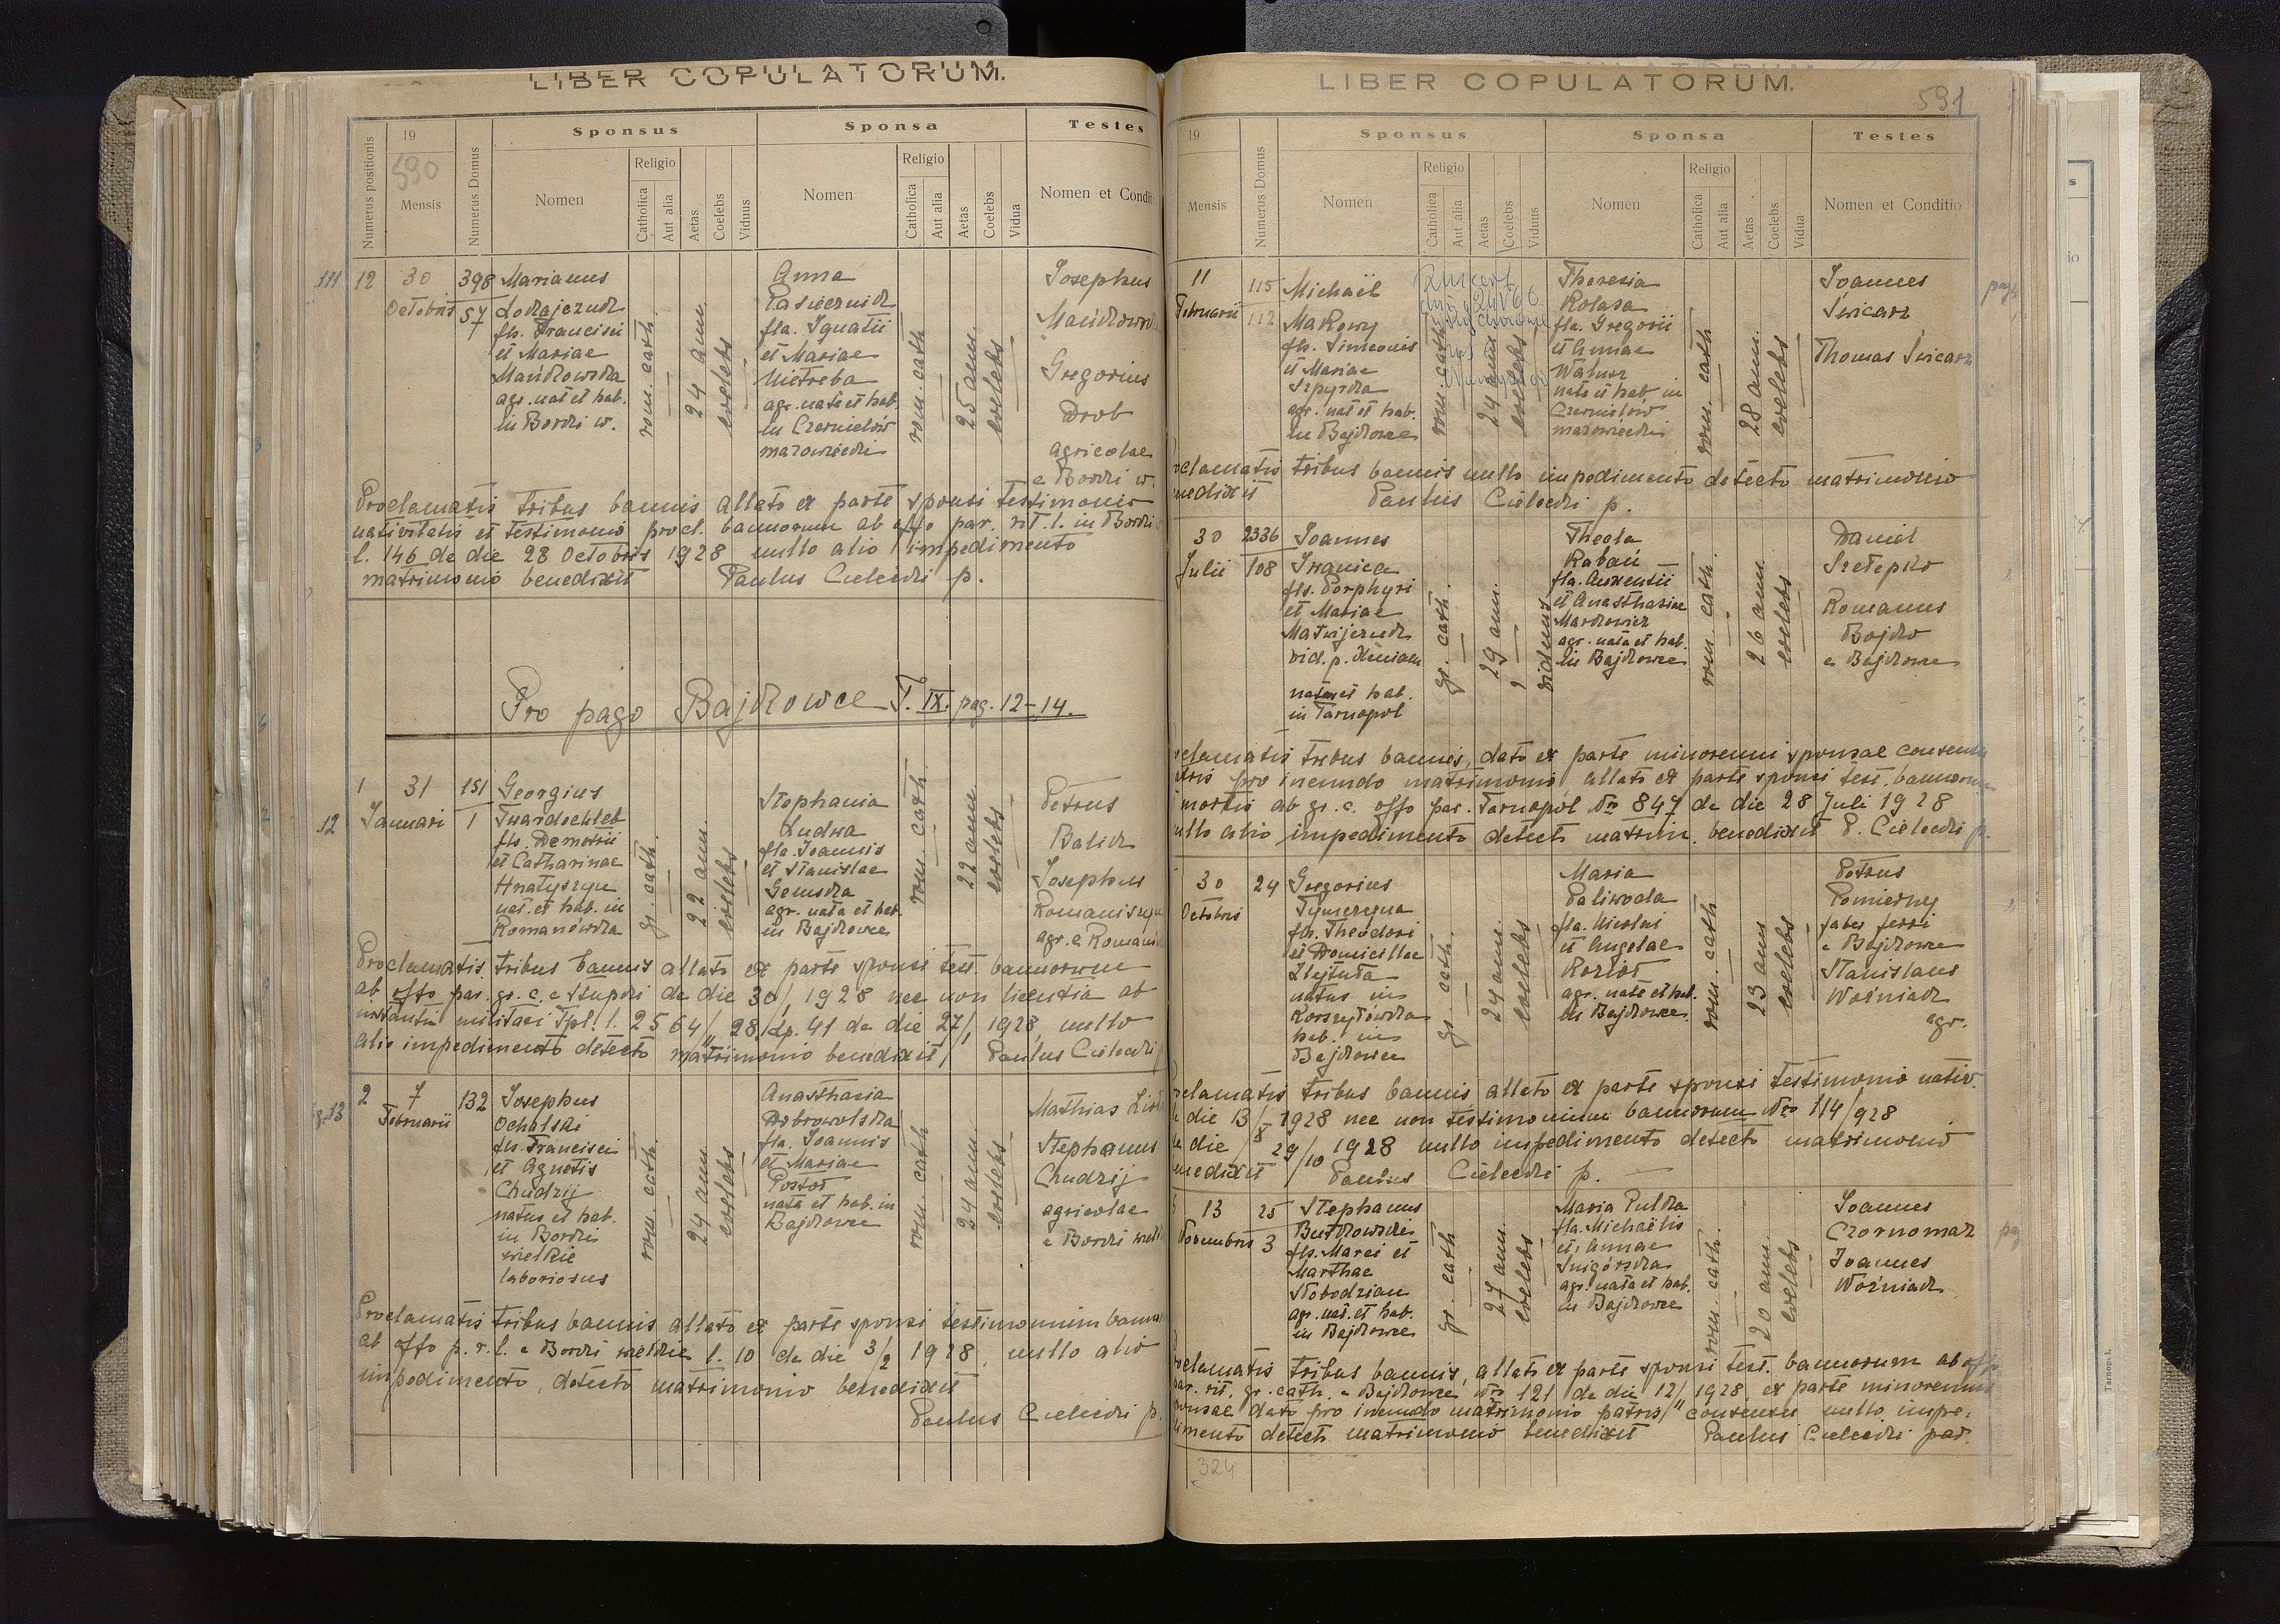 LIBER COPULATORUM.
Numerus positionis
19
590
Mensis
Numerus Domus
Sponsus
Nomen
Religio
Catholica
Aut alia
Aetas
Coelebs
Viduus
Sponsa
Nomen
Religio
Catholica
Aut alia
Aetas
Coelebs
Vidua
Testes
Nomen et Condit
111 12 30 Octobris
398
57
Marianus
fls. Francisci
et Mariae
Mańkowska
agr. nat et hab.
in Borki w.
rom. cath.
24 ann.
coelebs
Anna
Pasiecznik
fla. Ignatii
et Mariae
Nietreba
agr. nata et hab.
in Czernelów
mazowiecki
rom. cath
25 ann.
coelebs
Josephus
Gregorius
Drob
agricolae
e Borki w.
Proclamatis tribus bannis allato ex parte sponsi testimonio
nativitatis et testimonio procl. bannorum ab offo par. rit. l. in Borki
l. 146 de die 28 Octobris 1928 nullo alio impedimento
matrimonio benedixit Paulus Cielecki p.
Pro pago Bajkowce T. IX. pag. 12-14.
12
1 31 Januari
151
1
Georgius
Twardochleb
fls. Demetrii
et Catharinae
Hnatyszyn
nat. et hab. in
Romanówka
gr. cath.
22 ann.
coelebs
Stephania
Ludwa
fla. Joannis
et Stanislae
agr. nata et hab.
in Bajkowce
rom. cath.
22 ann
coelebs
Petrus
Josephus
agr. e
Proclamatis tribus bannis allato ex parte sponsi test. bannorum
ab offo par. gr. c. e Stupki de die 30/1 1928 nec non licentia ab
militari Tpl. l. 2564/28 dp. 41 de die 27/1 1928, nullo
alio impedimento detecto matrimonio benedixit Paulus Cielecki
13
2 7 Februarii
132
Josephus
Ochalski
fls. Francisci
et Agnetis
Chudzij
natus et hab.
in Borki
wielkie
laboriosus
rom. cath.
24 ann
coelebs
Anasthasia
Dobrowolska
fla. Joannis
et Mariae
nata et hab. in
Bajkowce
rom. cath
24 ann.
coelebs
Mathias
Stephanus
Chudzij
agricolae
e Borki
Proclamatis tribus bannis allato ex parte sponsi testimonium
ab offo p. r. l. e Borki wielkie l. 10 de die 3/2 1928, nullo alio
impedimento detecto matrimonio benedixit
Paulus Cielecki p.
LIBER COPULATORUM.
591
19
Mensis
Numerus Domus
Sponsus
Nomen
Religio
Catholica
Aut alia
Aetas
Coelebs
Viduus
Sponsa
Nomen
Religio
Catholica
Aut alia
Aetas
Coelebs
Vidua
Testes
Nomen et Conditio
11 Februarii
115
112
Michaël
Makowy
fls. Simeonis
et Mariae
Szpyrka
agr. nat et hab.
in Bajkowce
rom. cath
24 ann
coelebs
Theresia
Kolasa
fla. Gregorii
et Annae
nata et hab. in
Czernielów
mazowiecki
rom. cath
28 ann.
coelebs
Joannes
Świcarz
Thomas Świcarz
oclamatis tribus bannis nullo impedimento detecto matrimonio
nedixit Paulus Cielecki p.
30 Julii
2336
108
Joannes
Iwanica
fls. Porphyri
et Mariae
Matwijczuk
natus et hab.
in Tarnopol
gr. cath.
29 ann.
viduus
Thecla
Kabań
fla. Auxentii
et Anasthasiae
Markowicz
agr. nata et hab.
in Bajkowce
rom. cath.
26 ann.
coelebs
Daniel
Szełepko
Romanus
Bojko
e Bajkowce
oclamatis tribus bannis, dato ex parte minorenni sponsae consensu
pro ineundo matrimonio, allato ex parte sponsi test. bannorum
mortis ab gr. c. offo par. Tarnopol No 847 de die 28 Juli 1928
ullo alio impedimento detecto matrim. benedixit P. Cielecki p.
30 Octobris
24
Gregorius
Tymczyna
fls. Theodori
et Domicillae
natus in
Korszyłówka
hab. in
Bajkowce
gr. cath.
24 ann.
coelebs
Maria
Paliwoda
fla. Nicolai
et Angelae
Kozioł
agr. nata et hab.
in Bajkowce
rom. cath
23 ann
coelebs
Petrus
Pomierny
faber ferri
e Bajkowce
Stanislaus
Woźniak
agr.
clamatis tribus bannis allato ex parte sponsi testimonio nativ.
die 13/8 1928 nec non testimonium bannorum No 114/928
de die 29/10 1928 nullo impedimento detecto matrimonio
nedixit Paulus Cielecki p.
13 Novembris
25
3
Stephanus
Butkowski
fls. Marci et
Marthae
Słobodzian
agr. nat. et hab.
in Bajkowce
gr. cath
27 ann.
coelebs
Maria Pulka
fla. Michaëlis
et Annae
Śnigórska
agr. nata et hab.
in Bajkowce
rom. cath.
20 ann.
coelebs
Joannes
Czornomaz
Joannes
Woźniak
oclamatis tribus bannis, allato ex parte sponsi test. bannorum ab offo
par. rit. gr. cath. e Bajkowce No 121 de die 12/11 1928, ex parte minorennis
sponsae dato pro ineundo matrimonio patris consensu nullo impe-
dimento detecto matrimonio benedixit Paulus Cielecki par.
324